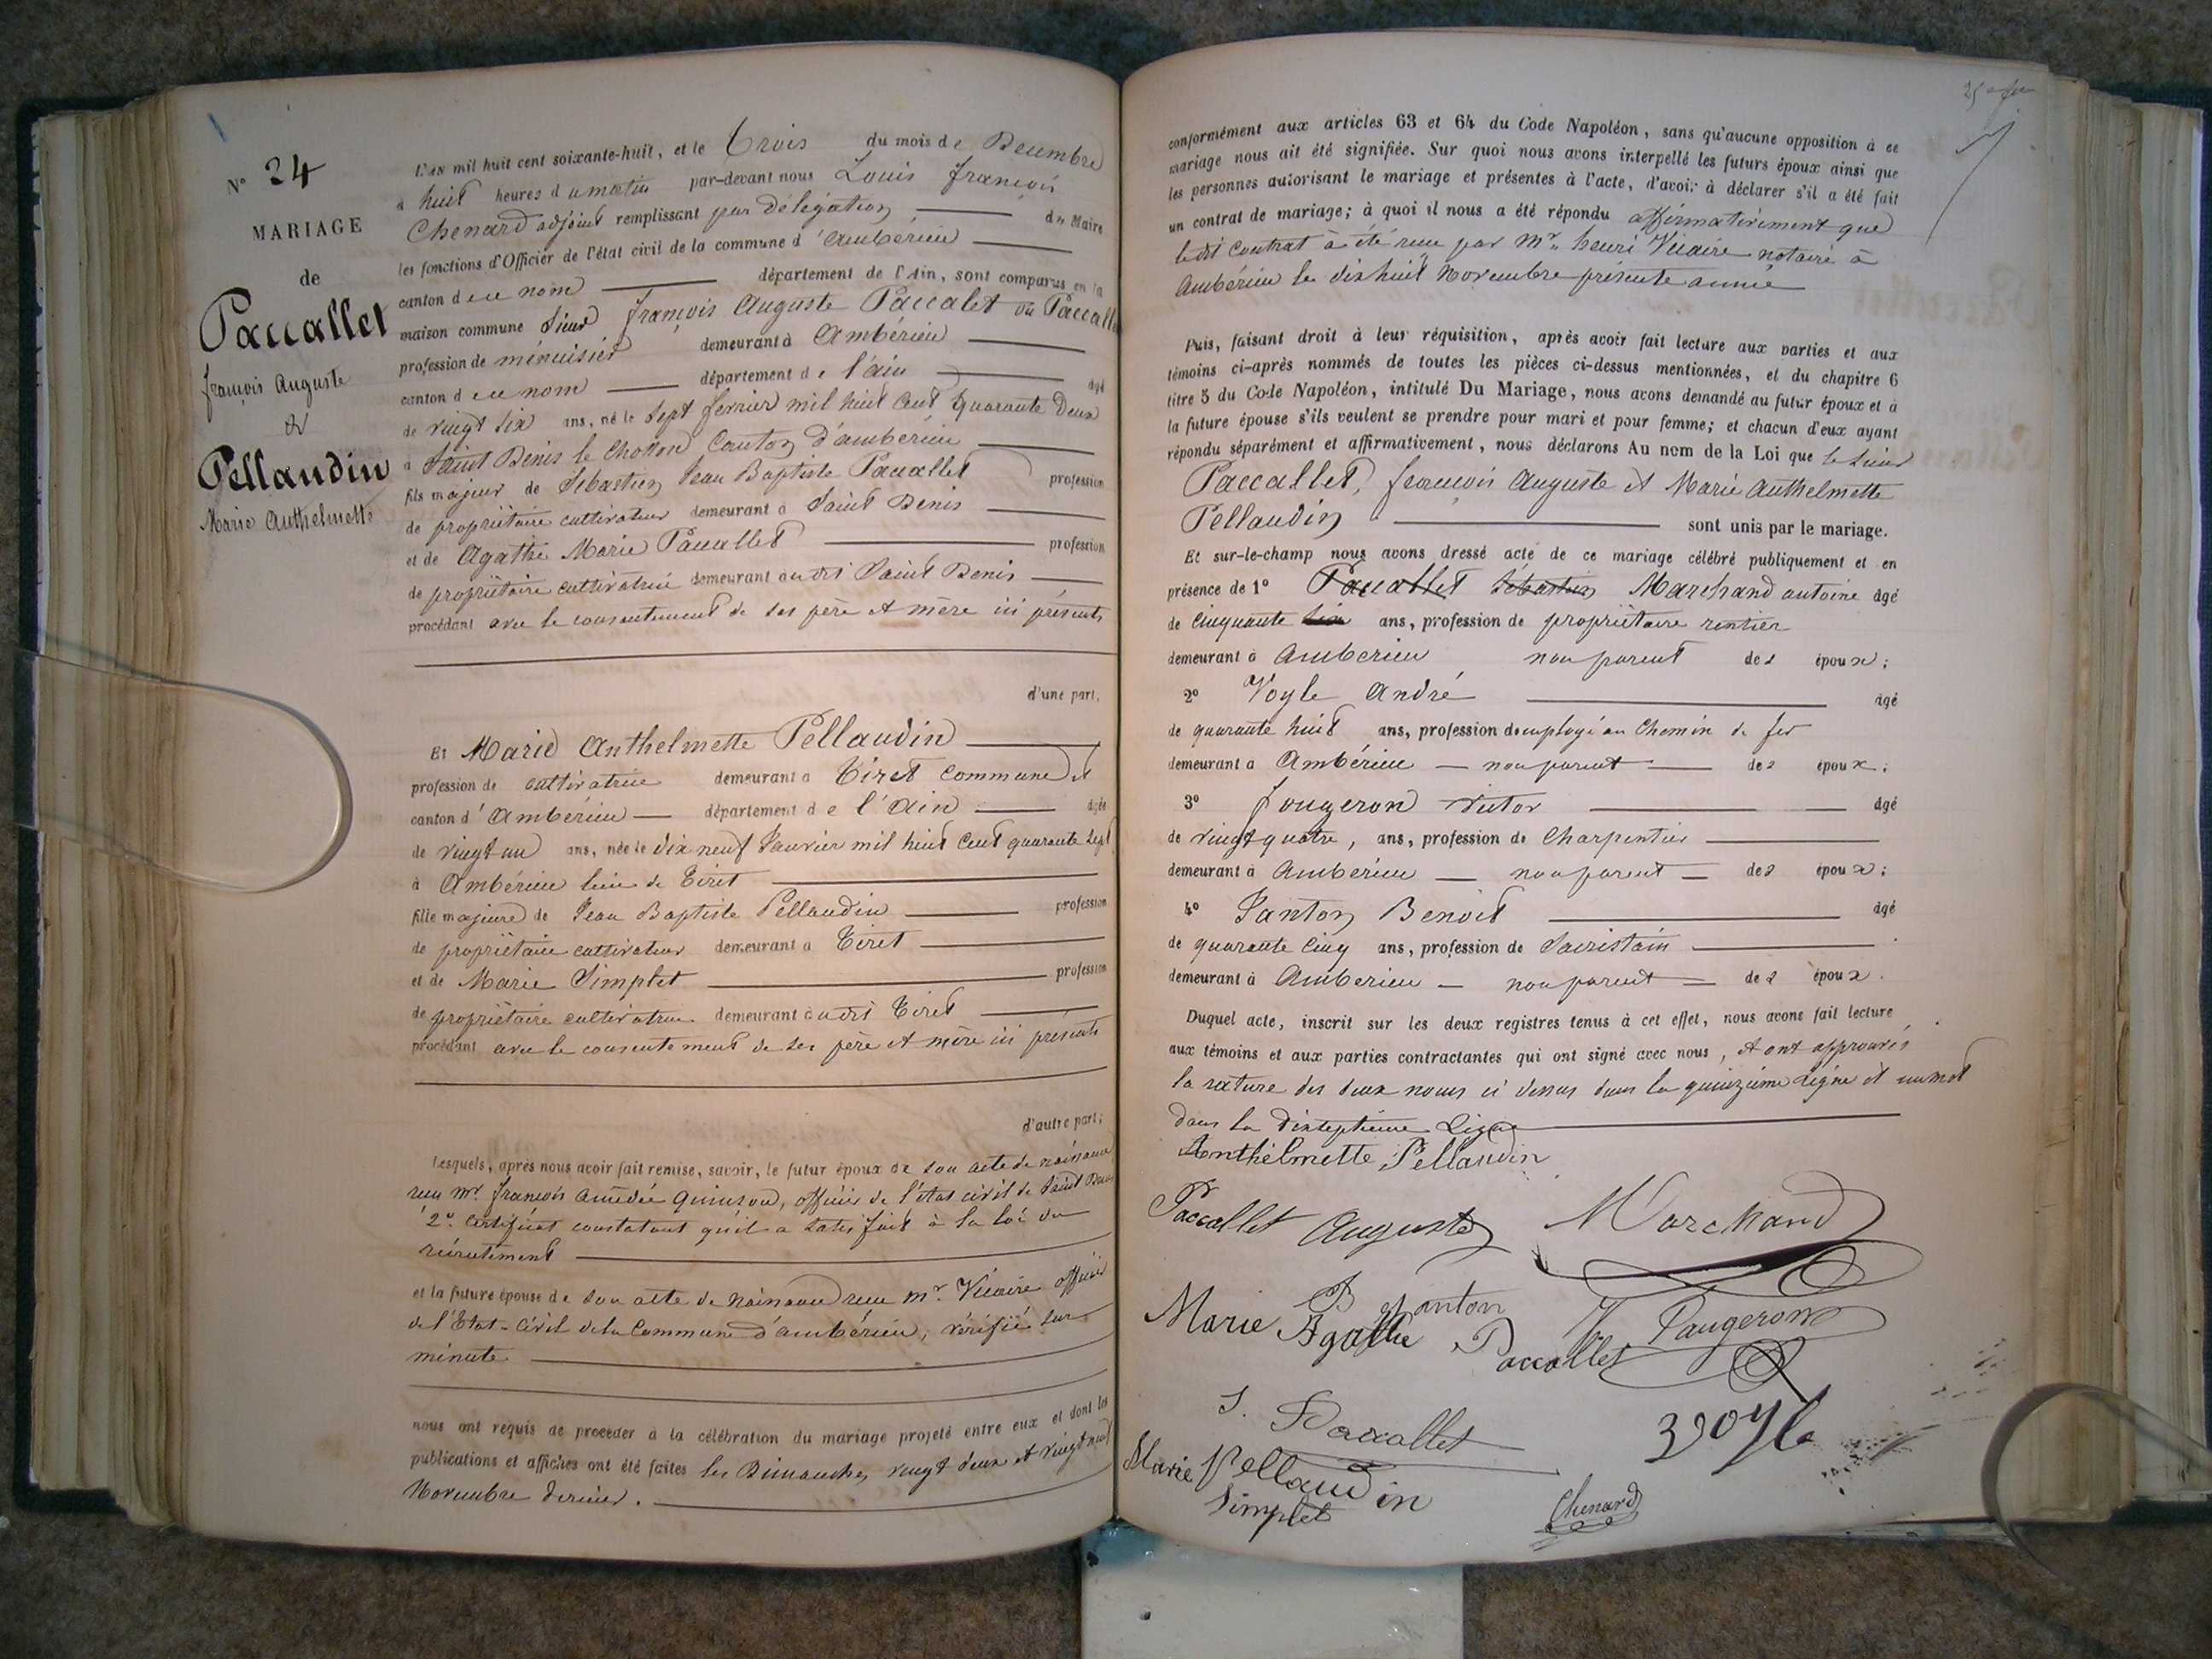 N° 24
MARIAGE
de
Paccallet
françois Auguste
&
Pellaudin
Marie Anthelmette
L'an mil huit cent soixante-huit, et le Trois du mois de Decembre
à huit heures du matin par-devant nous Louis françois
Chenard adjoint remplissant par délégation du Maire
les fonctions d'Officier de l'état civil de la commune d'Ambérieu
canton de ce nom département de l'Ain, sont comparus en la
maison commune Sieur françois Auguste Paccalet ou Paccallet
profession de menuisier demeurant à Ambérieu
canton de ce nom département de l'ain âgé
de vingt six ans, né le Sept fevrier mil huit Cent Quarante Deux
à Saint Denis le Chosson Canton d'ambérieu
fils majeur de Sébastien Jean Baptiste Paccallet profession
de propriétaire cultivateur demeurant à Saint Denis
et de Agathe Marie Paccallet profession
de propriétaire cultivatrice demeurant audit Saint Denis
procédant avec le consentement de ses père et mère ici présents
d'une part,
Et Marie Anthelmette Pellaudin
profession de cultivatrice demeurant à Tiret Commune et
canton d'Ambérieu département de l'Ain âgée
de vingt un ans, née le dix neuf Janvier mil huit Cent quarante Sept
à Ambérieu lieu de Tiret
fille majeure de Jean Baptiste Pellaudin profession
de propriétaire cultivateur demeurant à Tiret
et de Marie Simplet profession
de propriétaire cultivatrice demeurant audit Tiret
procédant avec le consentement de ses père et mère ici présents
d'autre part;
Lesquels, après nous avoir fait remise, savoir, le futur époux de son acte de naissance
reçu mr. françois amédée Quinson, officier de l'état civil de Saint Denis
2° Certificat constatant qu'il a satisfait à la loi du
recrutement
et la future épouse de son acte de naissance reçu mr. Vicaire officier
de l'Etat-Civil de la Commune d'ambérieu, vérifié sur
minute
nous ont requis de procéder à la célébration du mariage projeté entre eux et dont les
publications et affiches ont été faites les Dimanches vingt deux et vingt neuf
Novembre dernier.
conformément aux articles 63 et 64 du Code Napoléon, sans qu'aucune opposition à ce
mariage nous ait été signifiée. Sur quoi nous avons interpellé les futurs époux ainsi que
les personnes autorisant le mariage et présentes à l'acte, d'avoir à déclarer s'il a été fait
un contrat de mariage; à quoi il nous a été répondu affirmativement que
ledit Contrat à été reçu par Mr. henri Vicaire notaire à
Ambérieu le dix huit Novembre présente année
Puis, faisant droit à leur réquisition, après avoir fait lecture aux parties et aux
témoins ci-après nommés de toutes les pièces ci-dessus mentionnées, et du chapitre 6
titre 5 du Code Napoléon, intitulé Du Mariage, nous avons demandé au futur époux et à
la future épouse s'ils veulent se prendre pour mari et pour femme; et chacun d'eux ayant
répondu séparément et affirmativement, nous déclarons Au nom de la Loi que le Sieur
Paccallet, françois Auguste et Marie Anthelmette
Pellaudin sont unis par le mariage.
Et sur-le-champ nous avons dressé acte de ce mariage célébré publiquement et en
présence de 1° Paccallet Sébastien Marchand antoine âgé
de Cinquante six ans, profession de propriétaire rentier
demeurant à Ambérieu non parent des époux;
2° Voyle André âgé
de quarante huit ans, profession d'employé au Chemin de fer
demeurant à Ambérieu non parent des époux;
3° fougeron Victor âgé
de vingt quatre, ans, profession de Charpentier
demeurant à Ambérieu non parent des époux;
4° Janton Benoit âgé
de quarante Cinq ans, profession de Sacristain
demeurant à Ambérieu non parent des époux.
Duquel acte, inscrit sur les deux registres tenus à cet effet, nous avons fait lecture
aux témoins et aux parties contractantes qui ont signé avec nous, et ont approuvés
la rature des deux noms ci dessus dans la quinzième Ligne et un mot
dans la dixseptième Ligne
Anthelmette Pellaudin
Paccallet Auguste Marchand
B Janton
Marie Agathe Paccallet
V Faugeron
S. Paccallet
Voyle
Marie Pellaudin
Simplet
Chenard